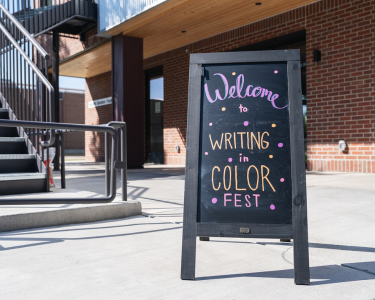 Welcome
to
WRITING
in
COLOR
FEST